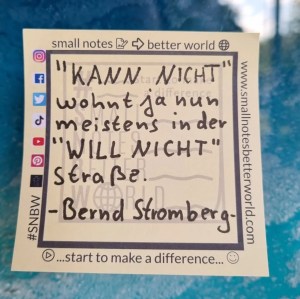 small notes → better world
"KANN NICHT"
wohnt ja nun
meistens in der
"WILL NICHT"
straße.
-Bernd Stromberg-
...start to make a difference...
#SNBW
www.smallnotesbetterworld.com